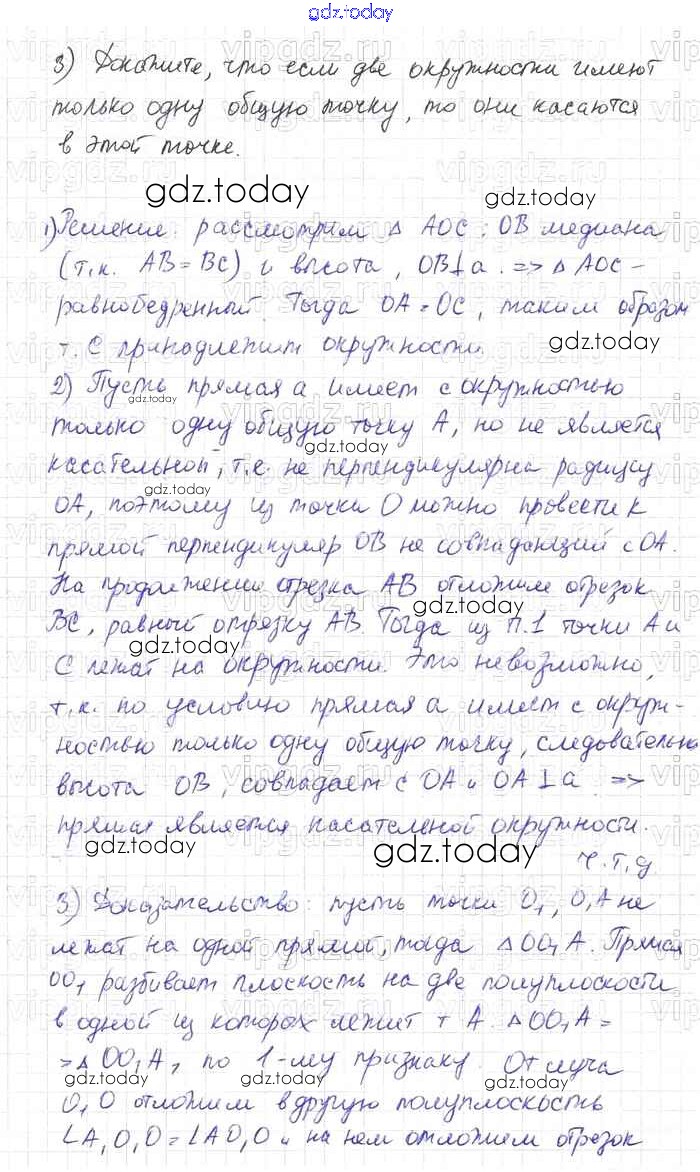 gdz.today
3) Докажите, что если две окружности имеют
только одну общую точку, то они касаются
в этой точке.
gdz.today
gdz.today
1) Решение: рассмотрим △ АОС: ОВ медиана
(т.к. АВ = ВС) и высота, ОВ⊥а. => △ АОС -
равнобедренный. Тогда ОА = ОС, таким образом
gdz.today
т. С принадлежит окружности.
2) Пусть прямая а имеет с окружностью
gdz.today
только одну общую точку А, но не является
gdz.today
касательной, т.е. не перпендикулярна радиусу
gdz.today
ОА, поэтому из точки О можно провести к
прямой перпендикуляр ОВ не совпадающий с ОА.
На продолжении отрезка АВ отложим отрезок
gdz.today
ВС, равный отрезку АВ. Тогда из п.1 точки А и
gdz.today
С лежат на окружности. Это невозможно,
т.к. по условию прямая а имеет с окруж-
ностью только одну общую точку, следовательно
высота ОВ, совпадает с ОА и ОА⊥а =>
прямая является касателеной окружности.
gdz.today
gdz.today
Ч.т.д.
3) Доказательство: пусть точки О₁, О, А не
лежат на одной прямой, тогда △ОО₁А. Прямая
ОО₁ разбивает плоскость на две полуплоскости
в одной из которых лежит т А. △ОО₁А =
= △ ОО₁А₁ по 1-му признаку. От луча
gdz.today
gdz.today
О₁О отложим в другую полуплоскость
∠А₁О₁О = ∠АО₁О и на нем отложим отрезок
gdz.today
gdz.today